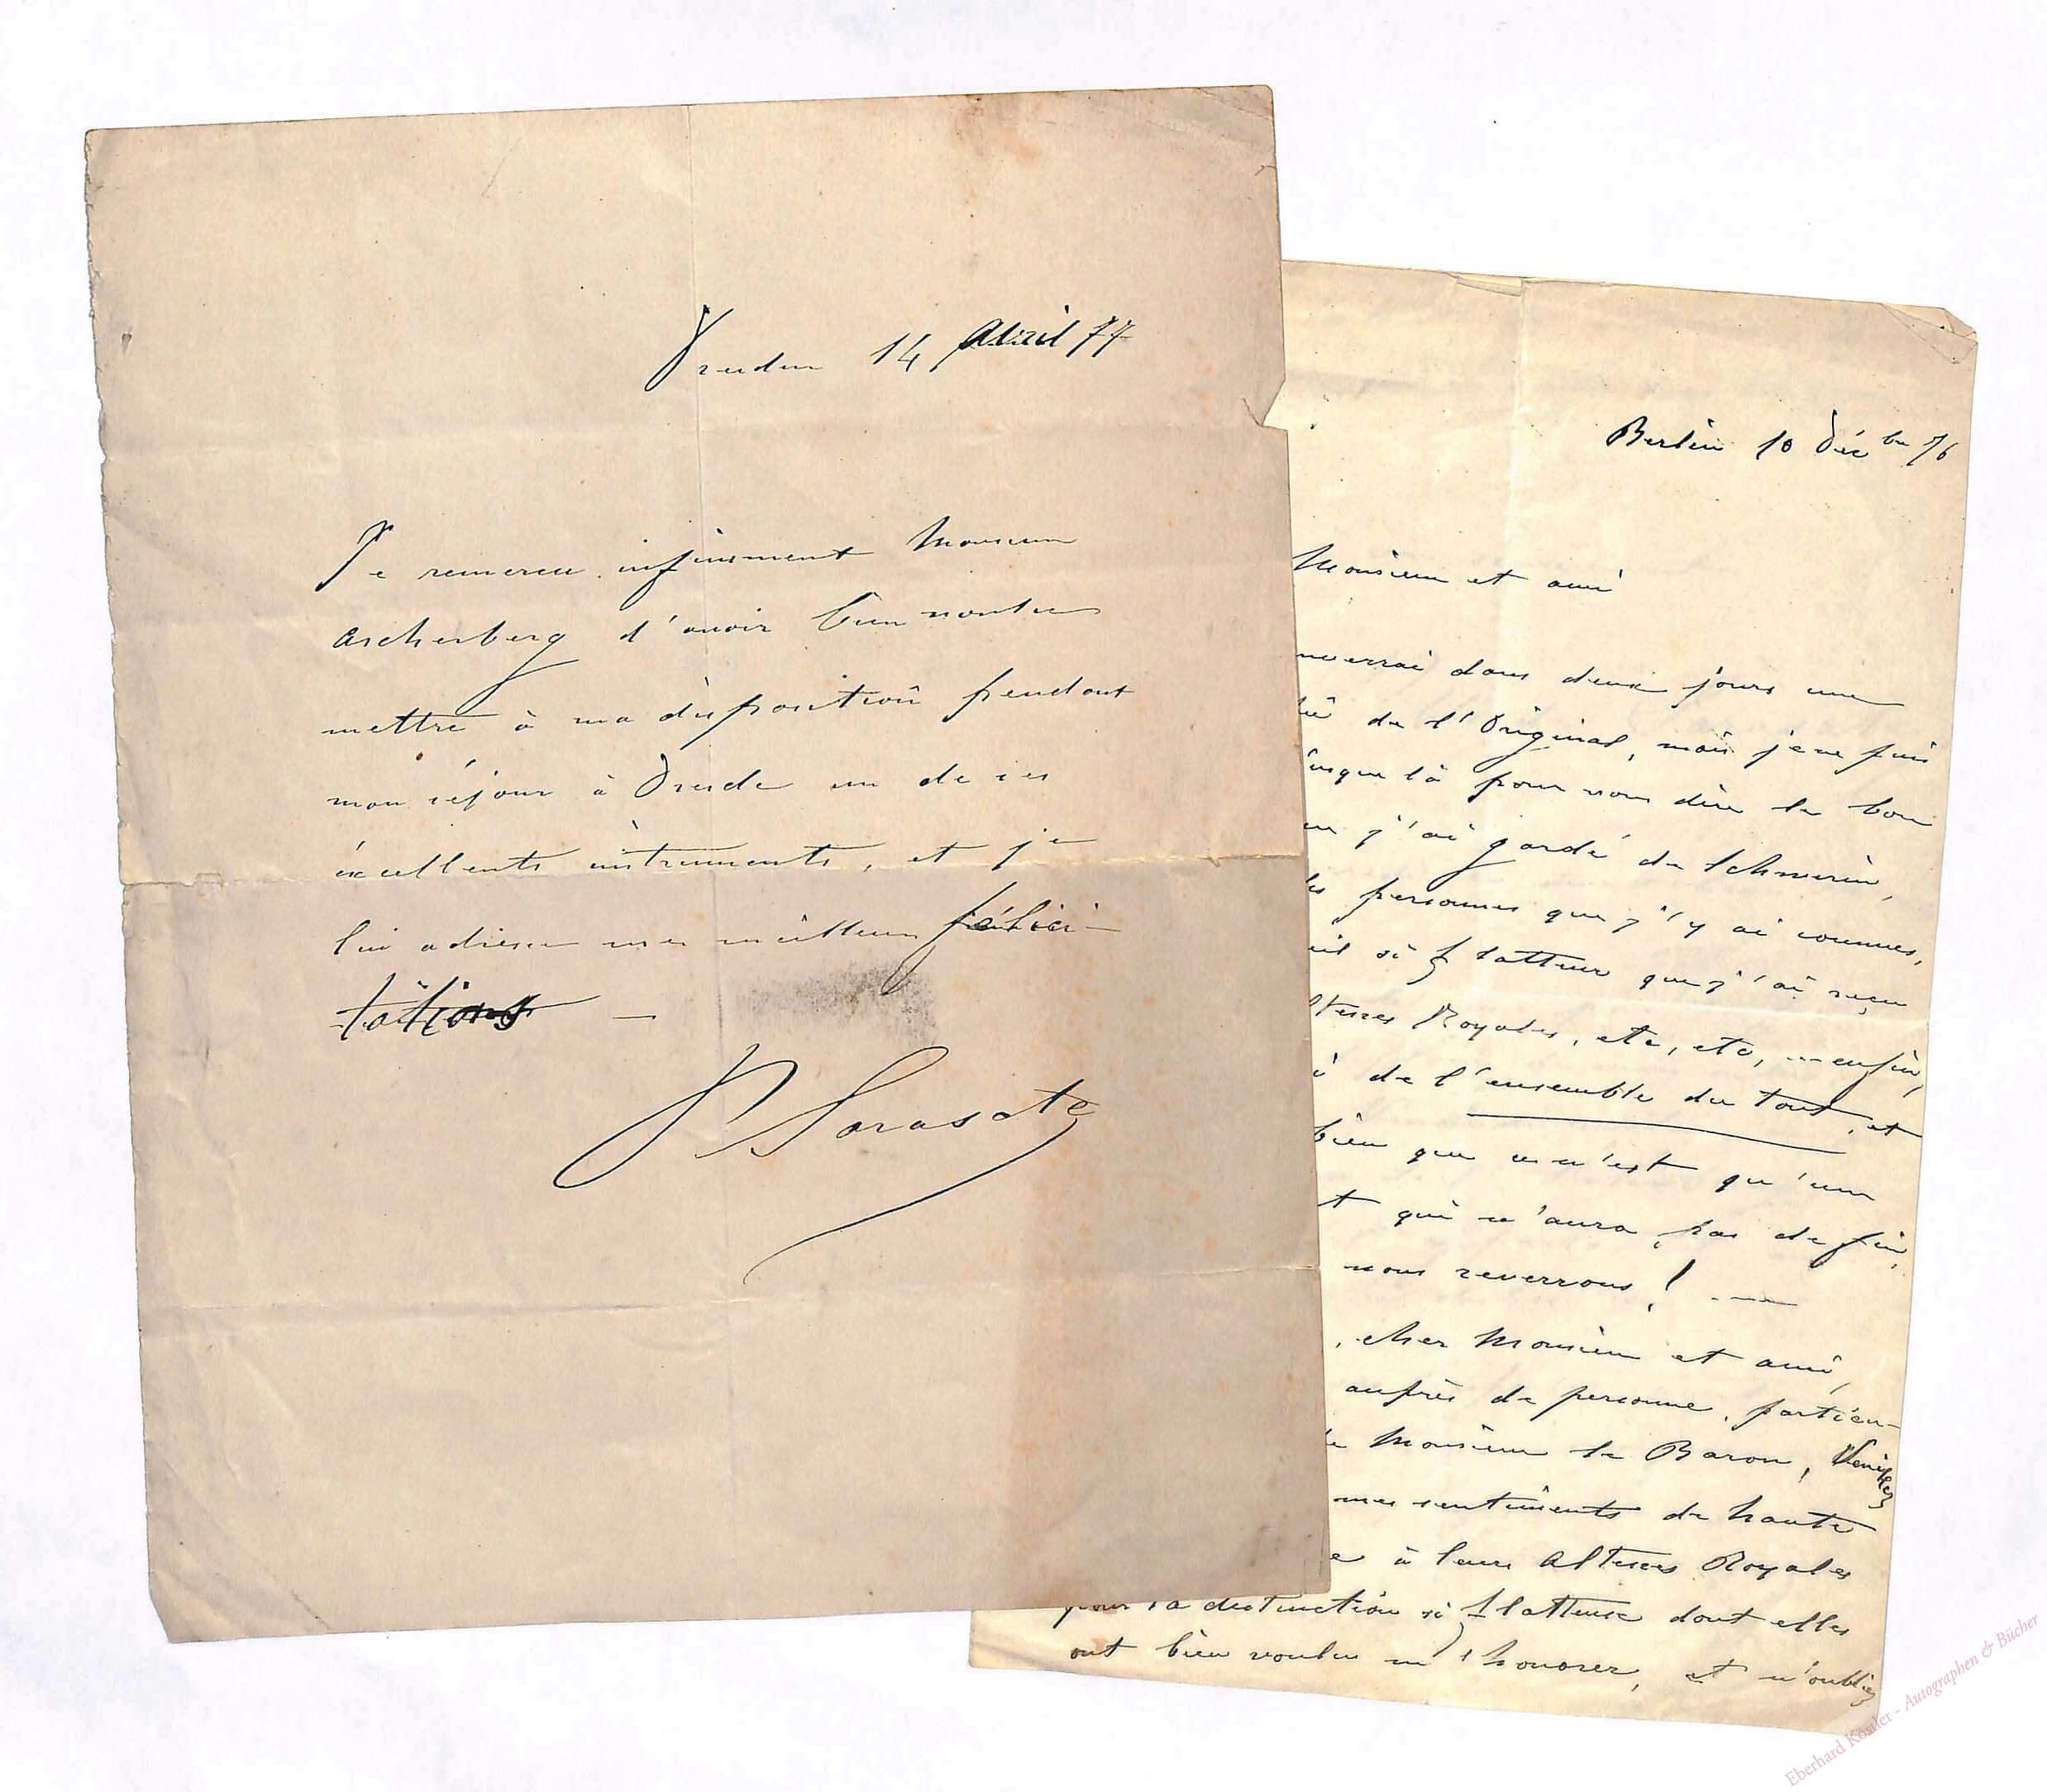 Dresden 14 Avril 77
Je remercie infiniment Monsieur
Ascherberg d'avoir bien voulu
mettre à ma disposition pendant
mon séjour à Dresde un de ses
éxcellents instruments, et je
lui adresse mes meilleurs félici-
tations —
P Sarasate
Berlin 10 Décbre 76
Monsieur et ami
dans deux jours une
de l'Original, mais je ne puis
jusque là pour vous dire le bon
j'ai gardé de Schwerin,
personnes que j'y ai connues,
si flatteur que j'ai reçu
Royales, etc, etc, enfin,
de l'ensemble du tout, et
bien que ce n'est qu'un
qui n'aura pas de fin,
nous reverrons! —
, cher Monsieur et ami,
auprès de personne, particu-
Monsieur le Baron, Veuillez
mes sentiments de haute
à leurs Altesses Royales
pour la distinction si flatteuse dont elles
ont bien voulu m'honorer, et n'oubliez
Eberhard Köstler - Autographen & Bücher